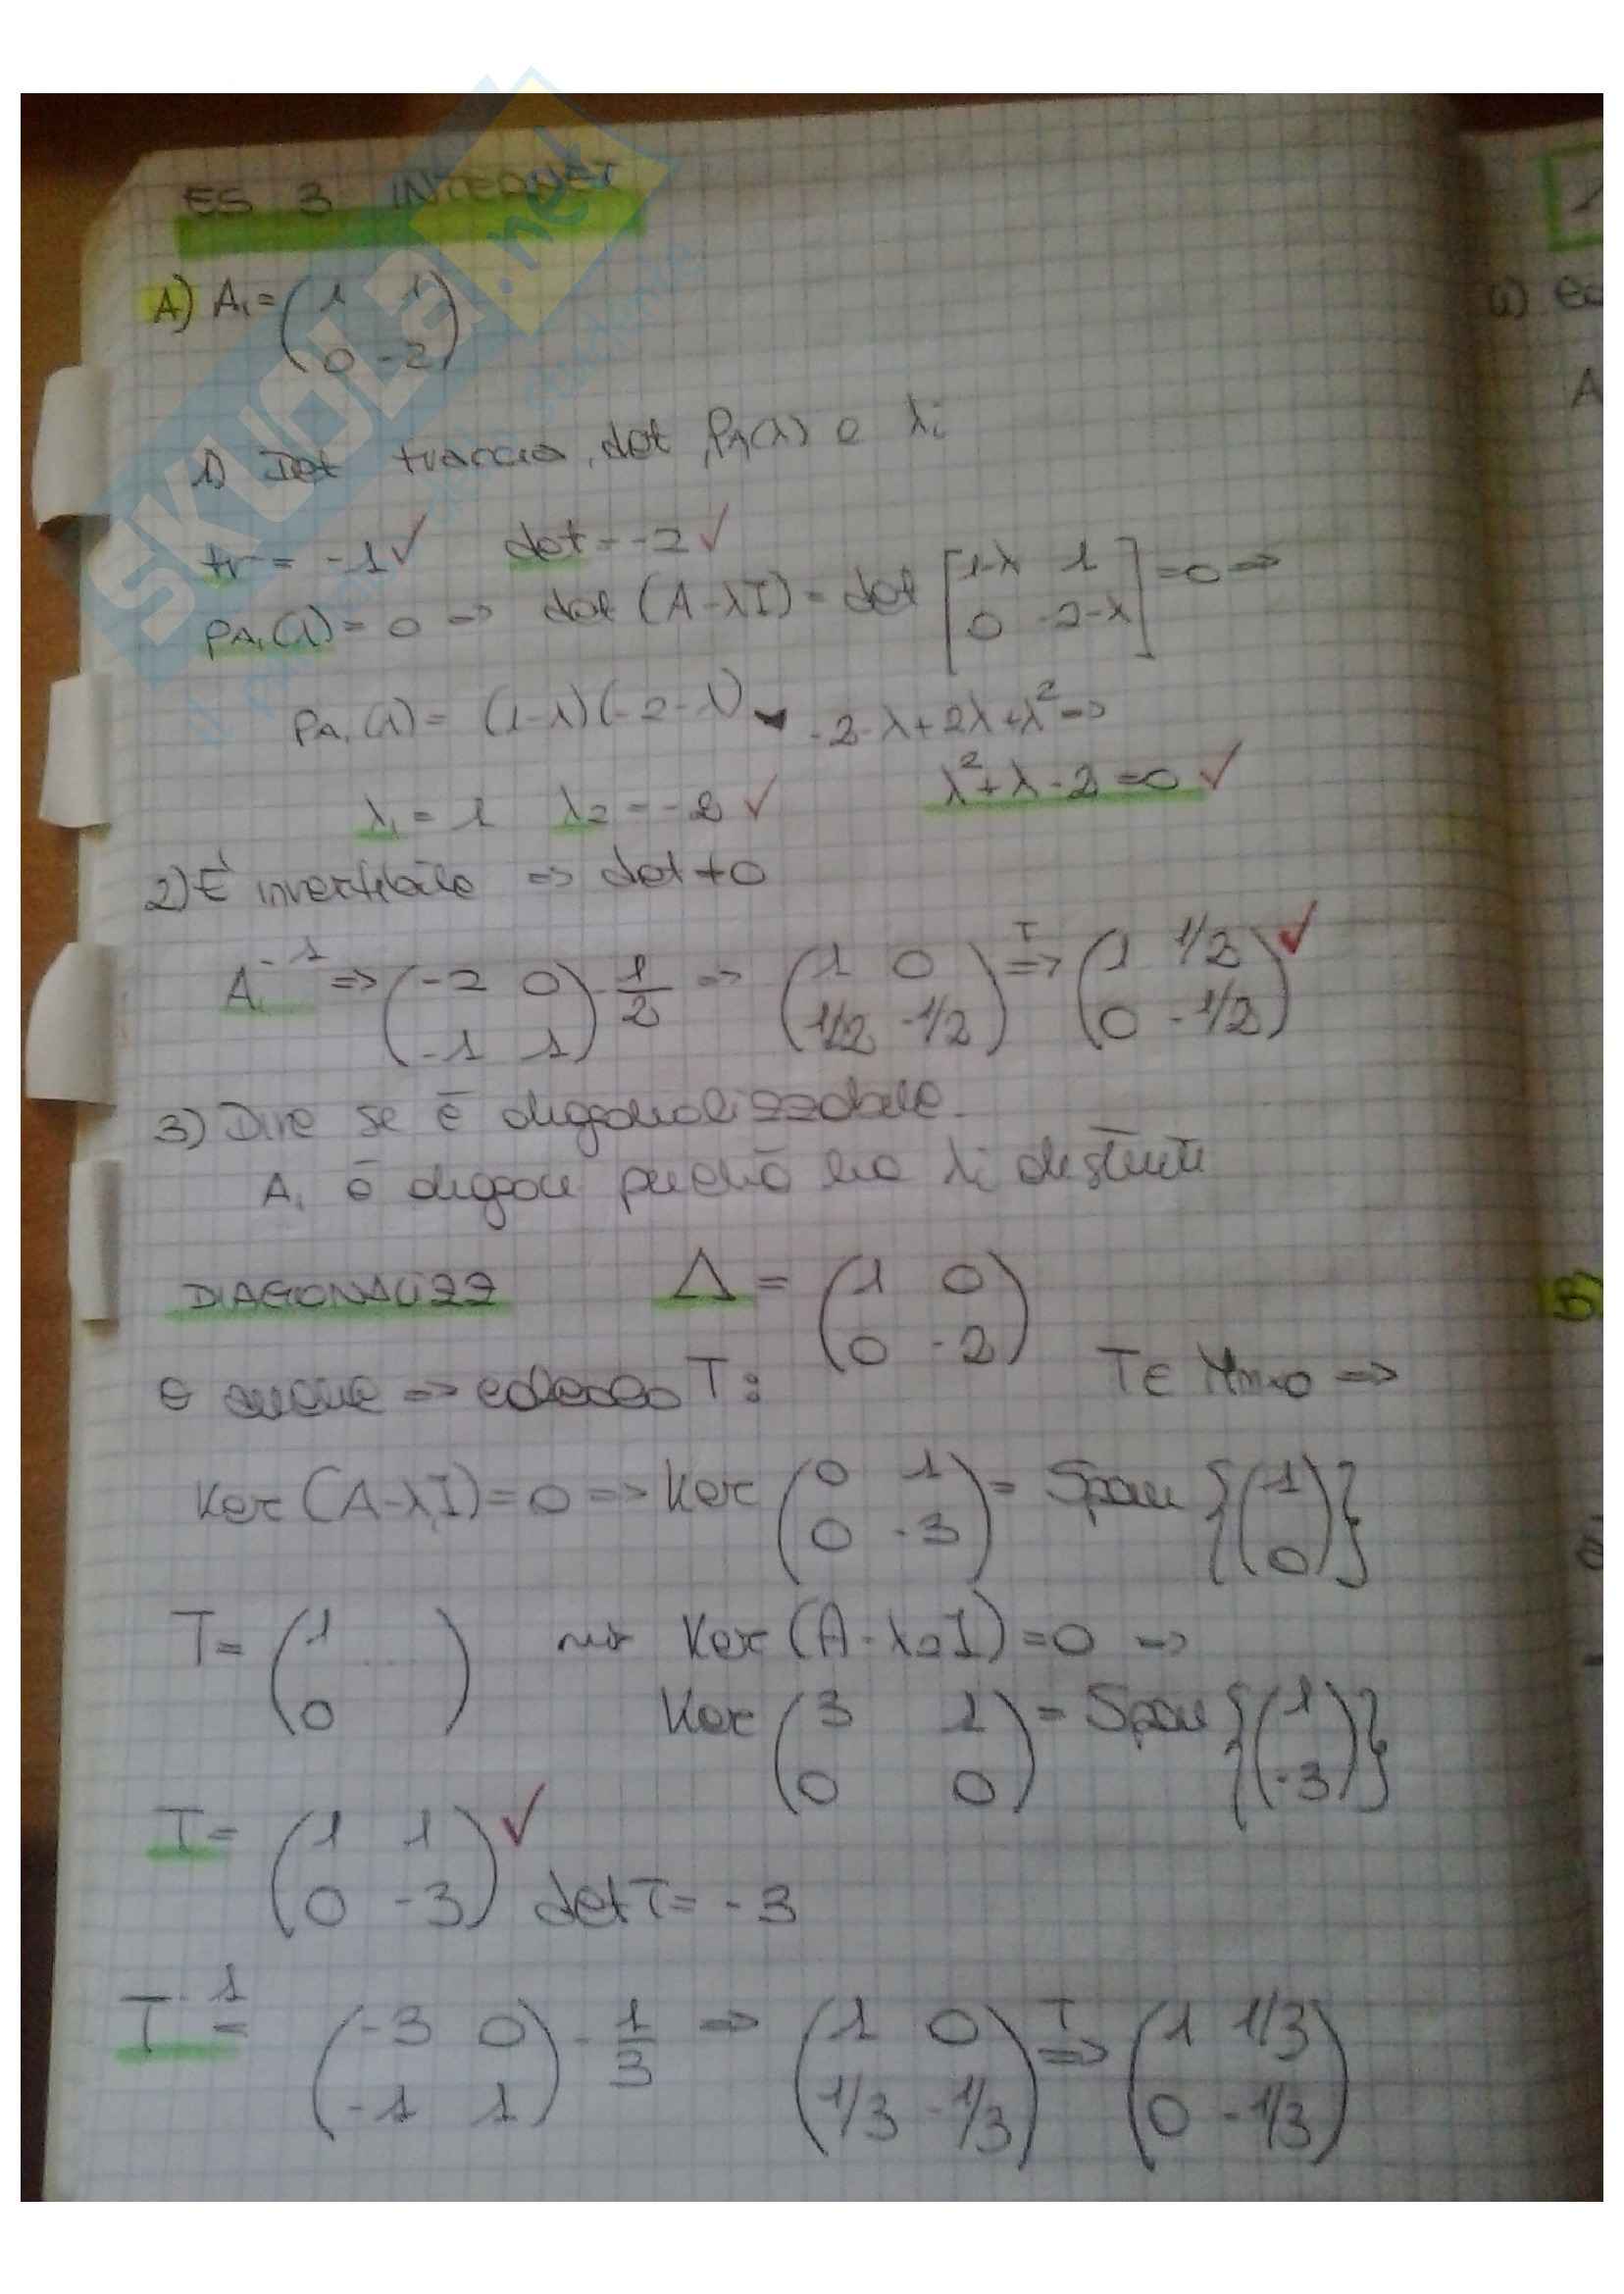 ES 3 INTERNET
A) A₁ = ( 1 1
0 -2 )
1) Det traccia, det, PA(λ) e λi
tr = -1 ✓ det = -2 ✓
PA₁(λ) = 0 => det (A-λI) = det [ 1-λ 1
0 -2-λ ] = 0 =>
PA₁(λ) = (1-λ)(-2-λ) - 2 - λ + 2λ + λ² =>
λ² + λ - 2 = 0 ✓
λ₁ = 1 λ2 = -2 ✓
2) É invertibile => det ≠ 0
A₁⁻¹ => ( -2 0
-1 1 ) - 1/2 => ( 1 0
1/2 -1/2 ) T => ( 1 1/2
0 -1/2 ) ✓
3) Dire se è diagonalizzabile.
A₁ è diagon perché ha λi distinti
DIAGONALIZZ Δ = ( 1 0
0 -2 )
T:
Ker (A-λ₁I) = 0 => Ker ( 0 1
0 -3 ) = Span { ( 1
0 ) }
T = ( 1
0 ) Ker (A-λ2I) = 0 =>
Ker ( 3 1
0 0 ) = Span { ( 1
-3 ) }
T = ( 1 1
0 -3 ) ✓ det T = -3
T⁻¹ = ( -3 0
-1 1 ) - 1/3 => ( 1 0
1/3 -1/3 ) T => ( 1 1/3
0 -1/3 )
SKUOLA.net